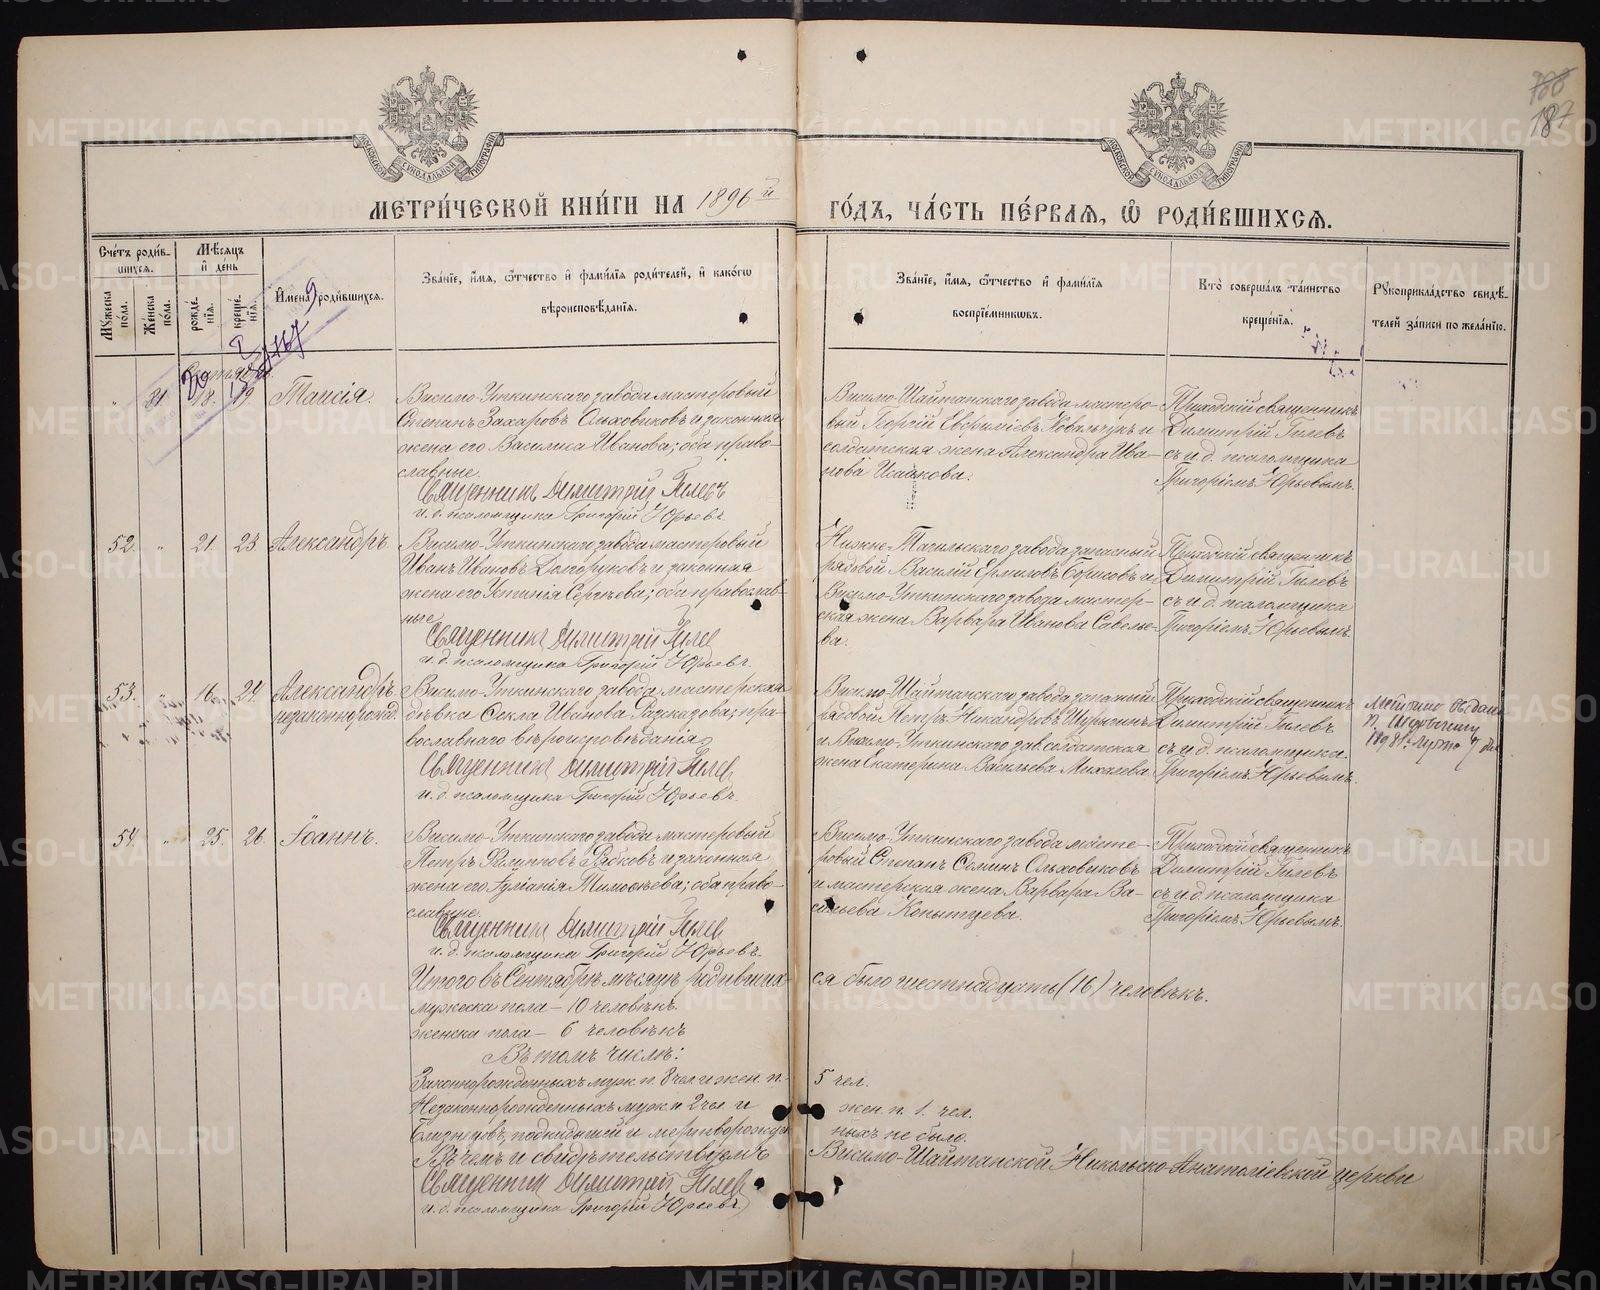 188
187
МОСКОВСКОЙ СѴНОДАЛЬНОЙ ТИПОГРАФІИ
МОСКОВСКОЙ СѴНОДАЛЬНОЙ ТИПОГРАФІИ
МЕТРИ́ЧЕСКОЙ КНИ́ГИ НА 1896й ГО́ДЪ, ЧА́СТЬ ПЕ́РВАѦ, Ѽ РОДИ́ВШИХСѦ.
Сче́тъ роди́в-
шихся.
Мꙋ́жеска по́ла.
Же́нска по́ла.
Мѣ́сяцъ
и҆ де́нь
рожде́нїя.
креще́нїя.
И҆мена̀ роди́вшихся.
Зва́нїе, и҆́мя, ѻ҆́тчество и҆ фами́лїя роди́телей, и҆ како́гѡ
вѣроисповѣ́данїя.
Зва́нїе, и҆́мя, ѻ҆́тчество и҆ фами́лїя
воспрїе́мникѡвъ.
Кто̀ соверша́лъ та́инство
креще́нїя.
Рꙋкоприкла́дство свидѣ́-
телей за́писи по жела́нїю.
Сентябрь.
„ 21. 18. 19. Таисія.
Висимо-Уткинскаго завода мастеровый
Степанъ Захаровъ Ольховиковъ и законная
жена его Василиса Иванова; оба право-
славные.
Священникъ Димитрій Гилевъ
и. д. псаломщика Григорій Юрьевъ.
Висимо-Шайтанскаго завода мастеро-
вый Георгій Евфиміевъ Ковальчукъ и
солдатская жена Александра Ива-
нова Исакова.
Приходскій священникъ
Димитрій Гилевъ
съ и.д. псаломщика
Григоріемъ Юрьевымъ.
52. „ 21. 23. Александръ.
Висимо-Уткинскаго завода мастеровый
Иванъ Ивановъ Долгоруковъ и законная
жена его Устинія Сергѣева; оба православ-
ные.
Священникъ Димитрій Гилев
и. д. псаломщика Григорій Юрьевъ.
Нижне-Тагильскаго завода запасный
рядовой Василій Ермиловъ Борисовъ и
Висимо-Уткинскаго завода мастер-
ская жена Варвара Иванова Савелье-
ва.
Приходскій священникъ
Димитрій Гилевъ
съ и.д. псаломщика
Григоріемъ Юрьевымъ.
53. „ 16. 24. Александръ
незаконнорожд.
Висимо-Уткинскаго завода мастерская
дѣвка Ѳекла Иванова Разсказова; пра-
вославнаго вѣроисповѣданія.
Священникъ Димитрій Гилев
и. д. псаломщика Григорій Юрьевъ.
Висимо-Шайтанскаго завода запасный
рядовой Петръ Никандровъ
и Висимо-Уткинскаго зав. солдатская
жена Екатерина Васильева Михалева.
Приходскій священникъ
Димитрій Гилевъ
съ и.д. псаломщика
Григоріемъ Юрьевымъ.
54. „ 25. 26. Іоаннъ.
Висимо-Уткинскаго завода мастеровый
Петръ Филипповъ Рябковъ и законная
жена его Іуліанія Тимоѳеева; оба право-
славные.
Священникъ Димитрій Гилев
и. д. псаломщика Григорій Юрьевъ.
Висимо-Уткинскаго завода масте-
ровый Степанъ Ольховиковъ
и мастерская жена Варвара Ва-
сильева Копытцева.
Приходскій священникъ
Димитрій Гилевъ
съ и.д. псаломщика
Григоріемъ Юрьевымъ.
Итого въ Сентябрѣ мѣсяцѣ родивших-ся было шестнадцать (16) человѣкъ.
мужеска пола – 10 человѣкъ.
женска пола – 6 человѣкъ
Въ томъ числѣ:
Законнорожденныхъ муж. п. 8 чел. и жен. п. – 5 чел.
Незаконнорожденныхъ муж. п. 2 чел. и жен. п. 1. чел.
Близнецовъ, подкидышей и мертворожден-ныхъ не было.
Въ чемъ и свидѣтельствуемъ Висимо-Шайтанской Николаево-Анатоліевской церкви
Священникъ Димитрій Гилев
и. д. псаломщика Григорій Юрьевъ.
METRIKI.GASO-URAL.RU